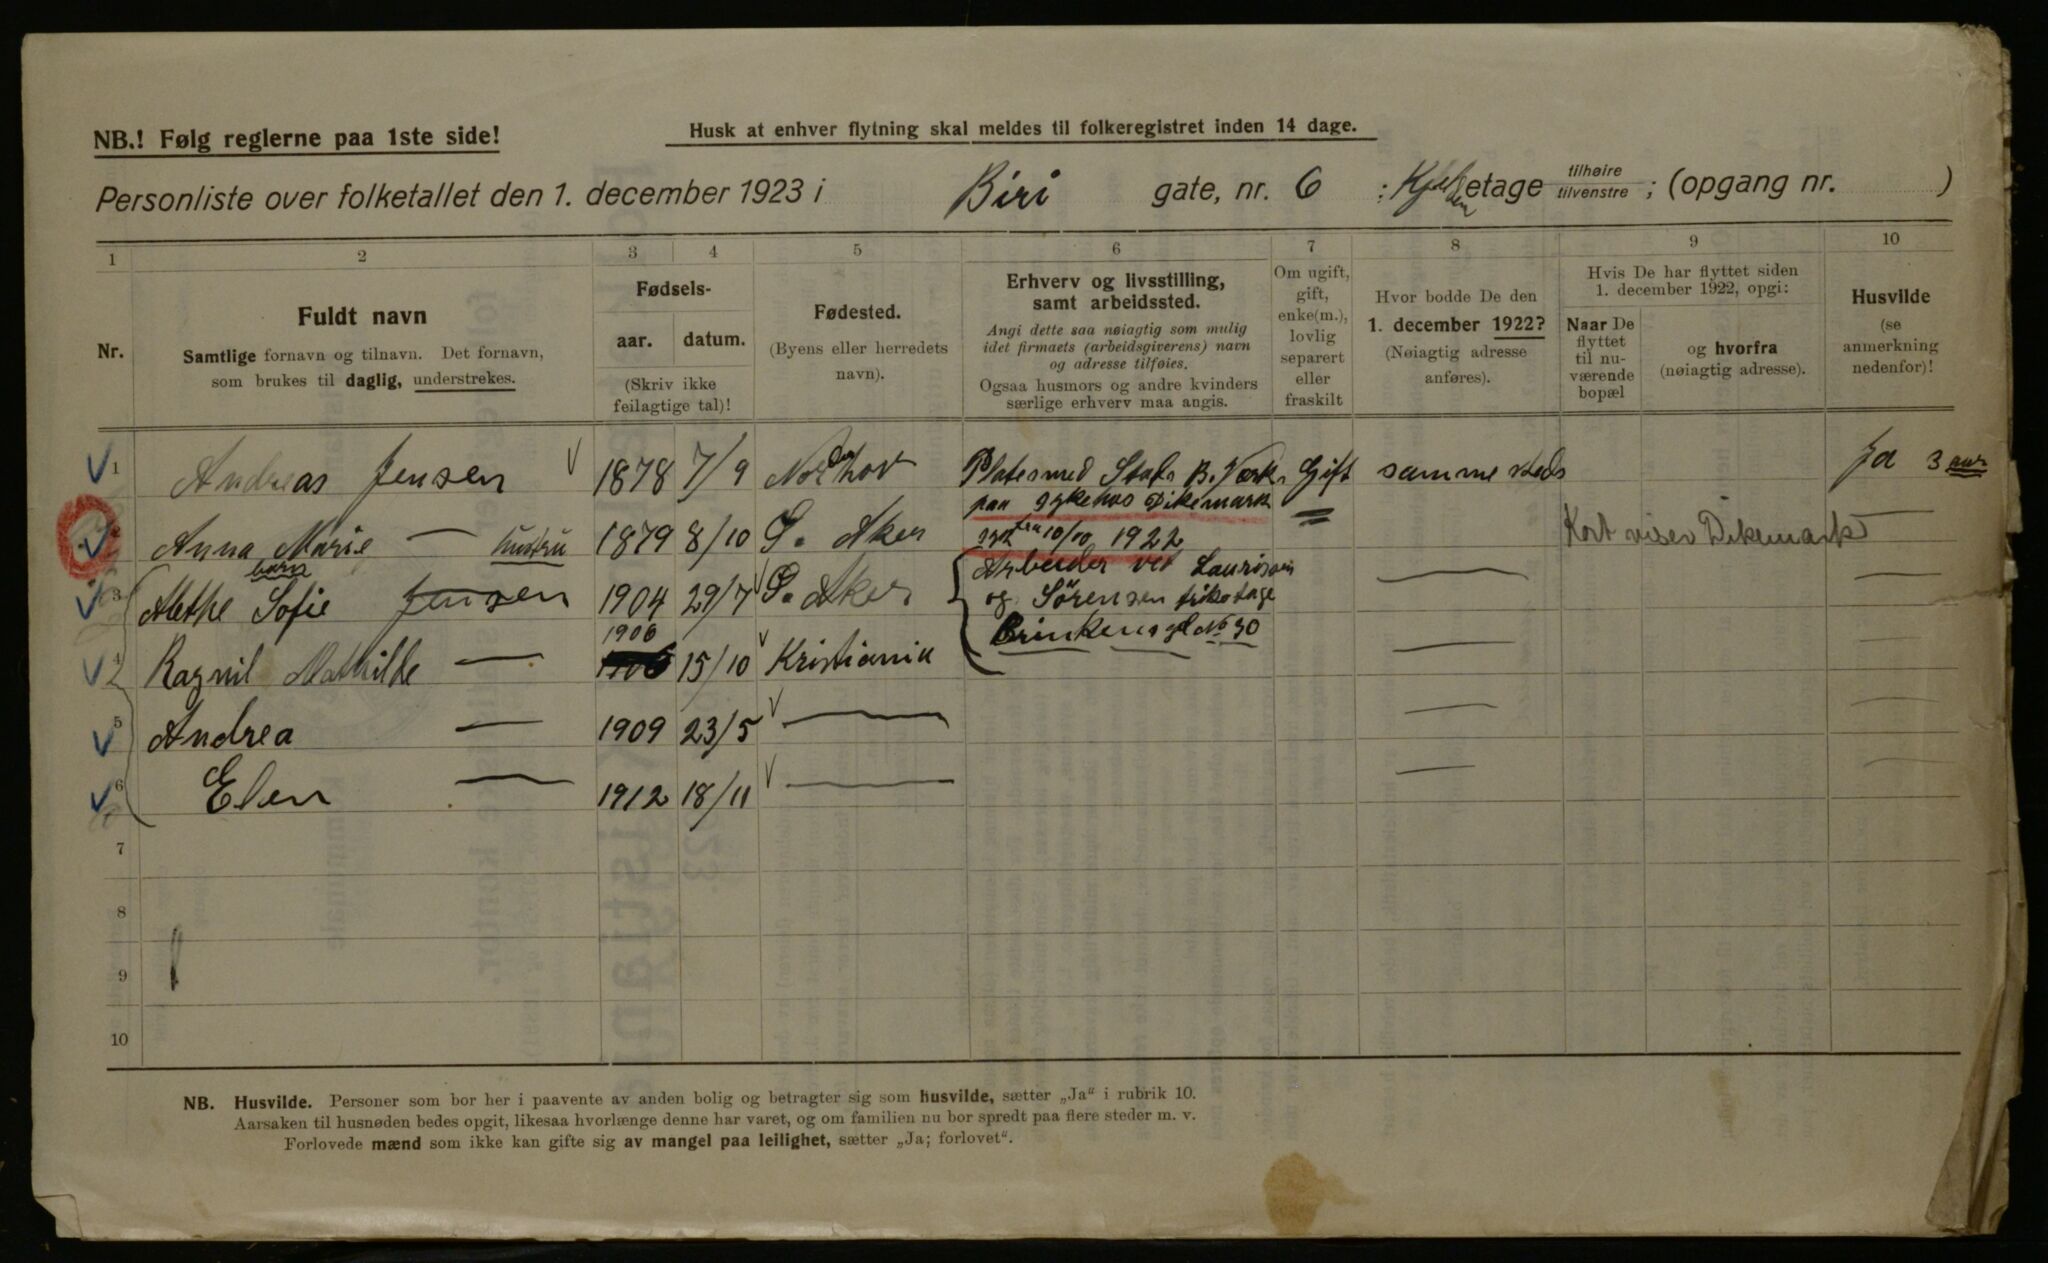 NB.! Følg reglerne paa 1ste side!
Husk at enhver flytning skal meldes til folkeregistret inden 14 dage.
Personliste over folketallet den 1. december 1923 i Biri gate, nr. 6 : Kjelderetage tilhøire tilvenstre ; (opgang nr. )
1 2 3 4 5 6 7 8 9 10
Nr.
Fuldt navn
Samtlige fornavn og tilnavn. Det fornavn,
som brukes til daglig, understrekes.
Fødsels-
aar. datum.
(Skriv ikke
feilagtige tal)!
Fødested.
(Byens eller herredets
navn).
Erhverv og livsstilling,
samt arbeidssted.
Angi dette saa nøiagtig som mulig
idet firmaets (arbeidsgiverens) navn
og adresse tilføies.
Ogsaa husmors og andre kvinders
særlige erhverv maa angis.
Om ugift,
gift,
enke(m.),
lovlig
separert
eller
fraskilt
Hvor bodde De den
1. december 1922?
(Nøiagtig adresse
anføres).
Hvis De har flyttet siden
1. december 1922, opgi:
Naar De
flyttet
til nu-
værende
bopæl
og hvorfra
(nøiagtig adresse).
Husvilde
(se
anmerkning
nedenfor)!
1 Andreas Jensen 1878 7/9 Norderhov Platesmed Stats B. Værk. Gift samme steds Ja 3 aar
paa sykehus Dikemark
2 Anna Marie — hustru 1879 8/10 S. Aker fra 10/10 1922 Kort viser Dikemark —
barn
3 Alethe Sofie Jensen 1904 29/7 S. Aker Arbeider ved Lauritsen — —
og Sörensen trikotage
1906 Brinkensgt No 30
4 Ragnil Mathilde — 15/10 Kristiania — —
5 Andrea — 1909 23/5 — — —
6 Elen — 1912 18/11 — — —
7
8
9
10
NB. Husvilde. Personer som bor her i paavente av anden bolig og betragter sig som husvilde, sætter „Ja“ i rubrik 10.
Aarsaken til husnøden bedes opgit, likesaa hvorlænge denne har varet, og om familien nu bor spredt paa flere steder m. v.
Forlovede mænd som ikke kan gifte sig av mangel paa leilighet, sætter „Ja; forlovet“.